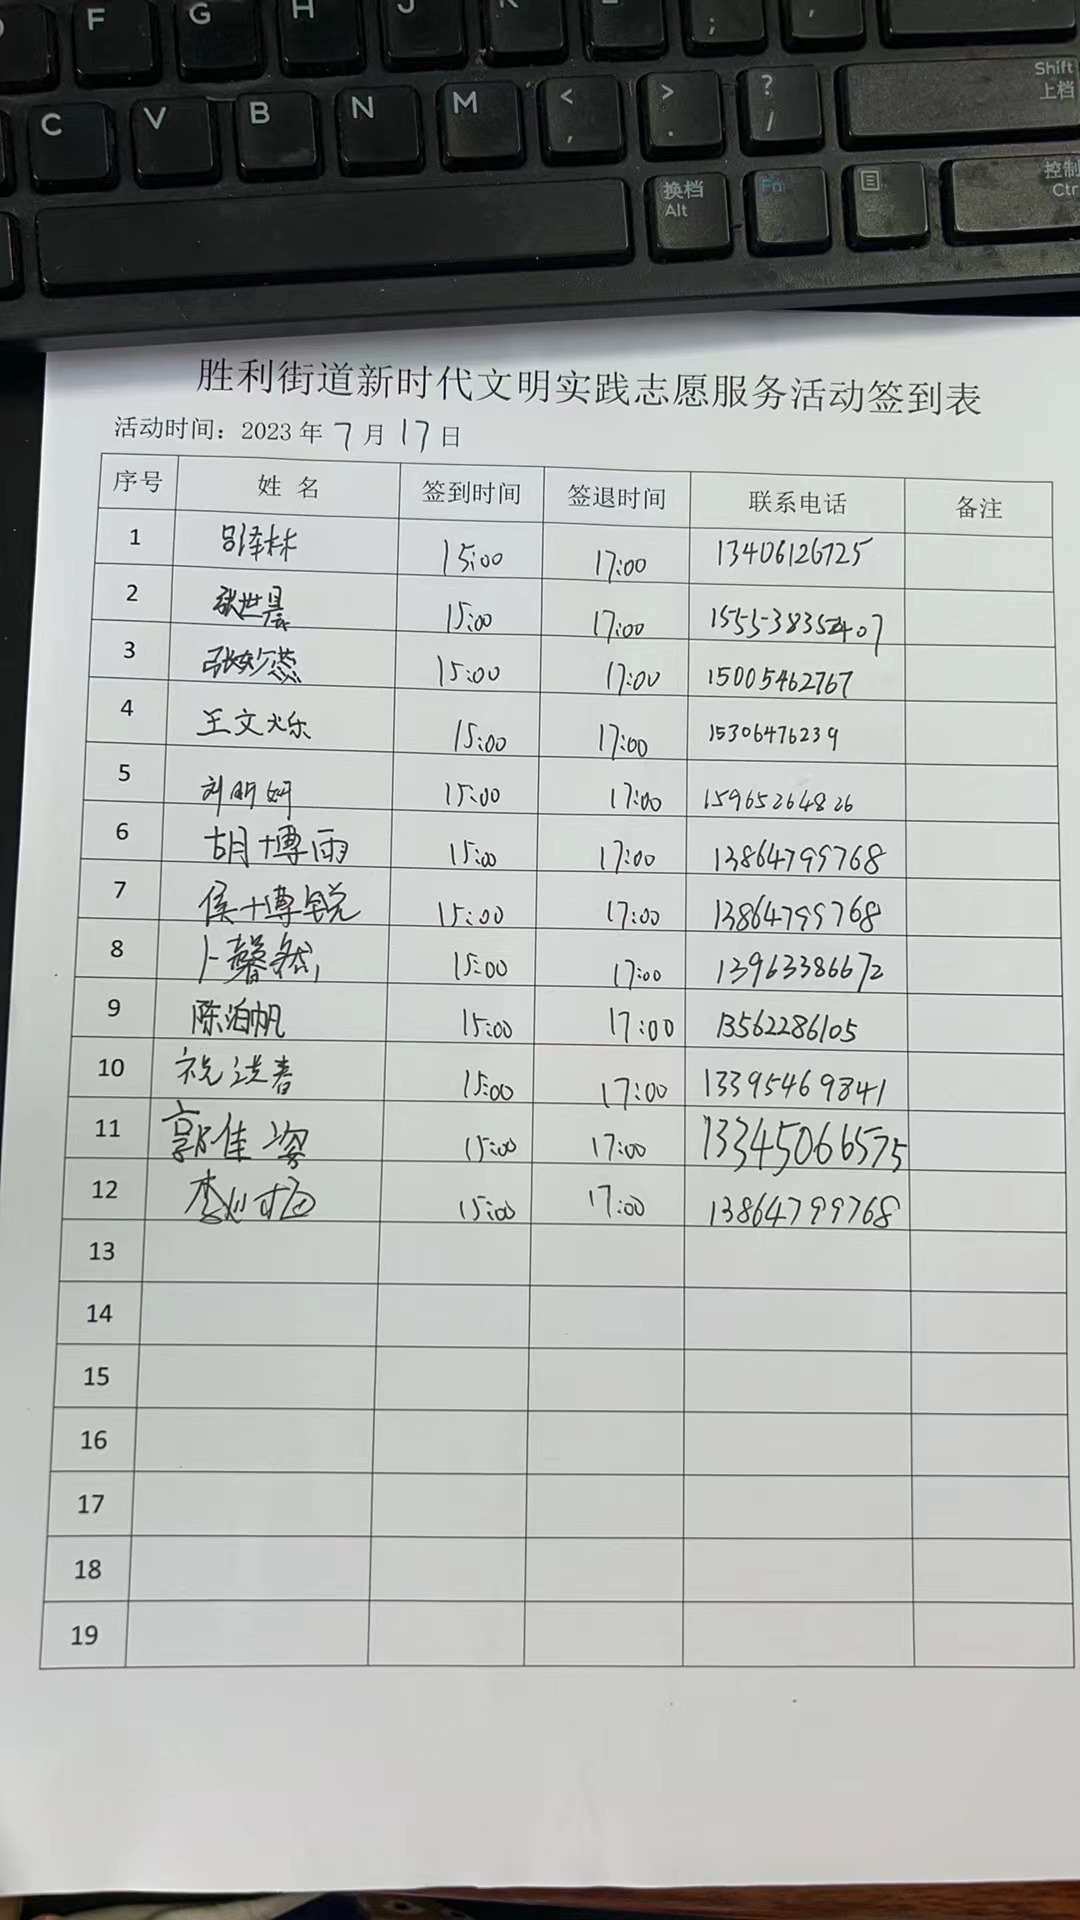 F G H J K L ;
C V B N M < , > . ? / Shift 上档
换档 Alt Fn 控制 Ctr
胜利街道新时代文明实践志愿服务活动签到表
活动时间：2023 年 7 月 17 日
序号 姓 名 签到时间 签退时间 联系电话 备注
1 吕泽林 15:00 17:00 13406126725
2 张世晨 15:00 17:00
3 15:00 17:00 15005462767
4 王文烁 15:00 17:00 15306476239
5 刘明妍 15:00 17:00 15965264826
6 胡博雨 15:00 17:00 13864799768
7 侯博锐 15:00 17:00 13864799768
8 卜馨然 15:00 17:00 13963386672
9 陈泊帆 15:00 17:00 13562286105
10 15:00 17:00 13395469841
11 郭佳姿 15:00 17:00 13345066575
12 15:00 17:00 13864799768
13
14
15
16
17
18
19